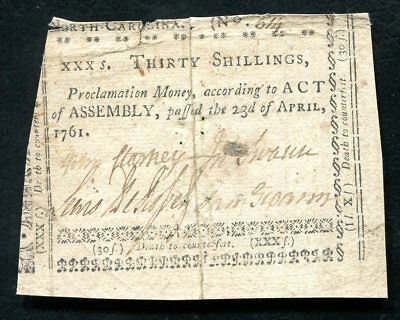 NORTH-CAROLINA. (No. 514
XXX s. THIRTY SHILLINGS,
Proclamation Money, according to ACT
of ASSEMBLY, passed the 23d of APRIL,
1761.
Jno Swann
Lewis De Rosset
(30s.) Death to counterfeit. (XXXs.)
(XXXs.) Death to counterfeit
(30s.) Death to counterfeit (1l. X s.)